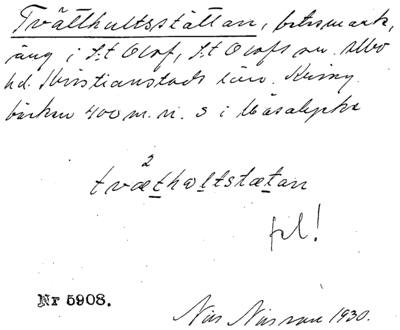 Tvätthultsstättan, betesmark,
äng i S:t Olof, S:t Olofs sn. Albo
hd. Kristianstads län. Kring
bäcken 400 m. n. 3 i
2
tvæthɷltstætan
fel!
Nr 5908.
Nils 1930.